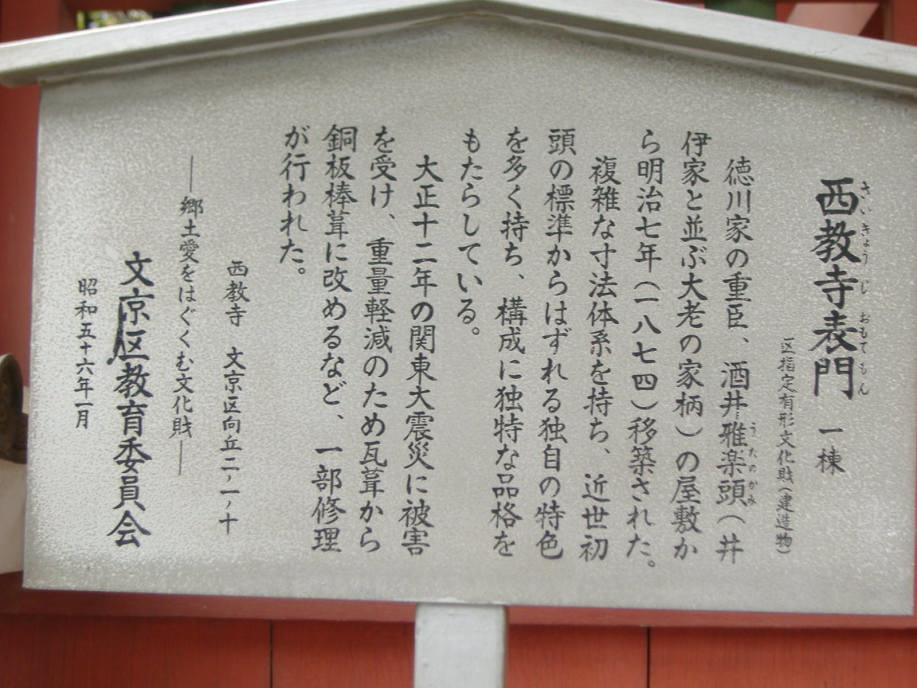 西教寺表門 一棟
さいきょうじ おもてもん
区指定有形文化財(建造物)
徳川家の重臣、酒井雅楽頭(井
うたのかみ
伊家と並ぶ大老の家柄)の屋敷か
ら明治七年(一八七四)移築された。
複雑な寸法体系を持ち、近世初
頭の標準からはずれる独自の特色
を多く持ち、構成に独特な品格を
もたらしている。
大正十二年の関東大震災に被害
を受け、重量軽減のため瓦葺から
銅板棒葺に改めるなど、一部修理
が行われた。
西教寺 文京区向丘二ノ一ノ十
―郷土愛をはぐくむ文化財―
文京区教育委員会
昭和五十六年一月